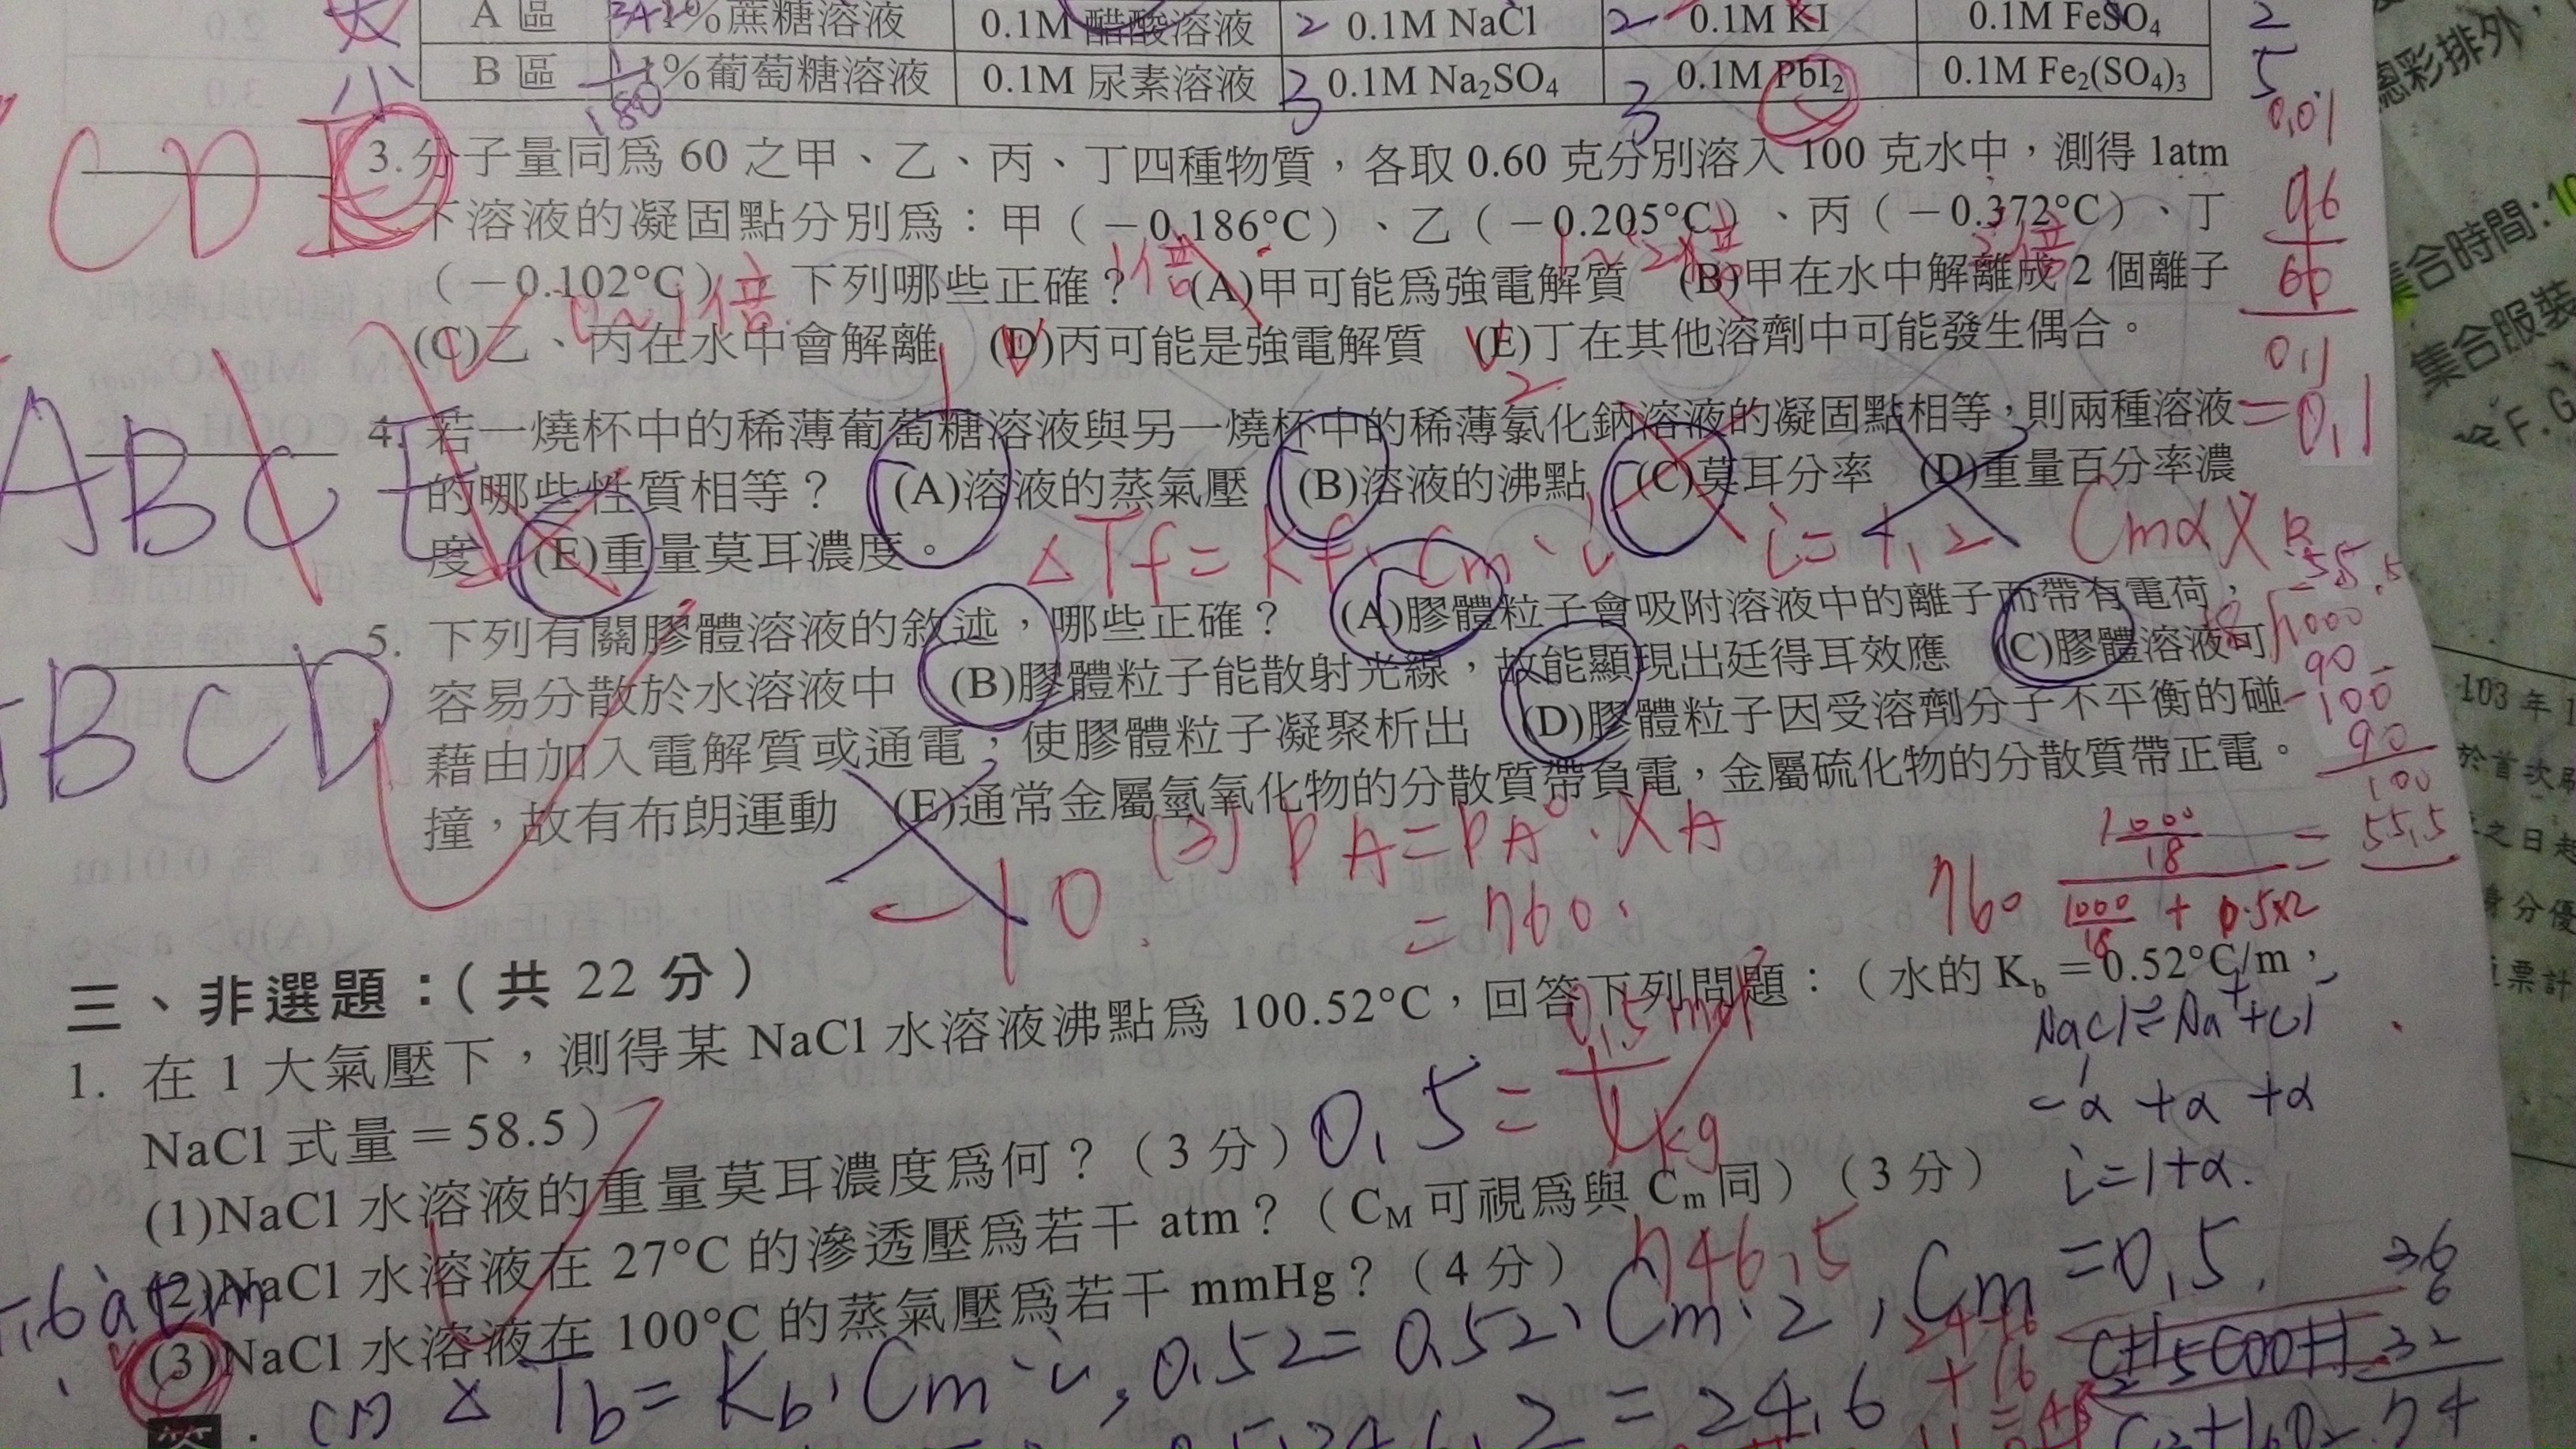 A 區 1%蔗糖溶液 0.1M 醋酸溶液 2 0.1M NaCl 2 0.1M KI 0.1M FeSO₄ 2
小 B 區 1%葡萄糖溶液 0.1M 尿素溶液 3 0.1M Na₂SO₄ 3 0.1M PbI₂ 0.1M Fe₂(SO₄)₃ 5
180
0.01
CDE
3. 分子量同為 60 之甲、乙、丙、丁四種物質，各取 0.60 克分別溶入 100 克水中，測得 1atm
下溶液的凝固點分別為：甲（－0.186°C）、乙（－0.205°C）、丙（－0.372°C）、丁
（－0.102°C）下列哪些正確？ (A)甲可能為強電解質 (B)甲在水中解離成 2 個離子
1倍 1~2倍 2倍
0~1倍
(C)乙、丙在水中會解離 (D)丙可能是強電解質 (E)丁在其他溶劑中可能發生偶合。
60
0.1
=0.1
ABCE
4. 若一燒杯中的稀薄葡萄糖溶液與另一燒杯中的稀薄氯化鈉溶液的凝固點相等，則兩種溶液
的哪些性質相等？ (A)溶液的蒸氣壓 (B)溶液的沸點 (C)莫耳分率 (D)重量百分率濃
度 (E)重量莫耳濃度。
ΔTf = Kf · Cm · i i = 1, 2 Cm α X
55.5
BCD
5. 下列有關膠體溶液的敘述，哪些正確？ (A)膠體粒子會吸附溶液中的離子而帶有電荷，
容易分散於水溶液中 (B)膠體粒子能散射光線，故能顯現出廷得耳效應 (C)膠體溶液可
藉由加入電解質或通電，使膠體粒子凝聚析出 (D)膠體粒子因受溶劑分子不平衡的碰
撞，故有布朗運動 (E)通常金屬氫氧化物的分散質帶負電，金屬硫化物的分散質帶正電。
18 1000
90
100
90
100
55.5
-10
(3) PA = PA° · XA
= 760 ·
760 1000/18 =
1000/18 + 0.5x2
三、非選題：（共 22 分）
1. 在 1 大氣壓下，測得某 NaCl 水溶液沸點為 100.52°C，回答下列問題：（水的 Kb＝0.52°C/m，
NaCl 式量＝58.5）
0.5 = 0.5 mol / 1 kg
NaCl ⇌ Na⁺ + Cl⁻
-α +α +α
i = 1+α.
(1)NaCl 水溶液的重量莫耳濃度為何？（3 分）
(2)NaCl 水溶液在 27°C 的滲透壓為若干 atm？（CM 可視為與 Cm 同）（3 分）
(3)NaCl 水溶液在 100°C 的蒸氣壓為若干 mmHg？（4 分）
746.5
ΔTb = Kb · Cm · i , 0.52 = 0.52 · Cm · 2 , Cm = 0.5.
= 24.6
36
6
32
74
集合時間:10
集合服裝
103 年
於首次
之日起
身分優
票計